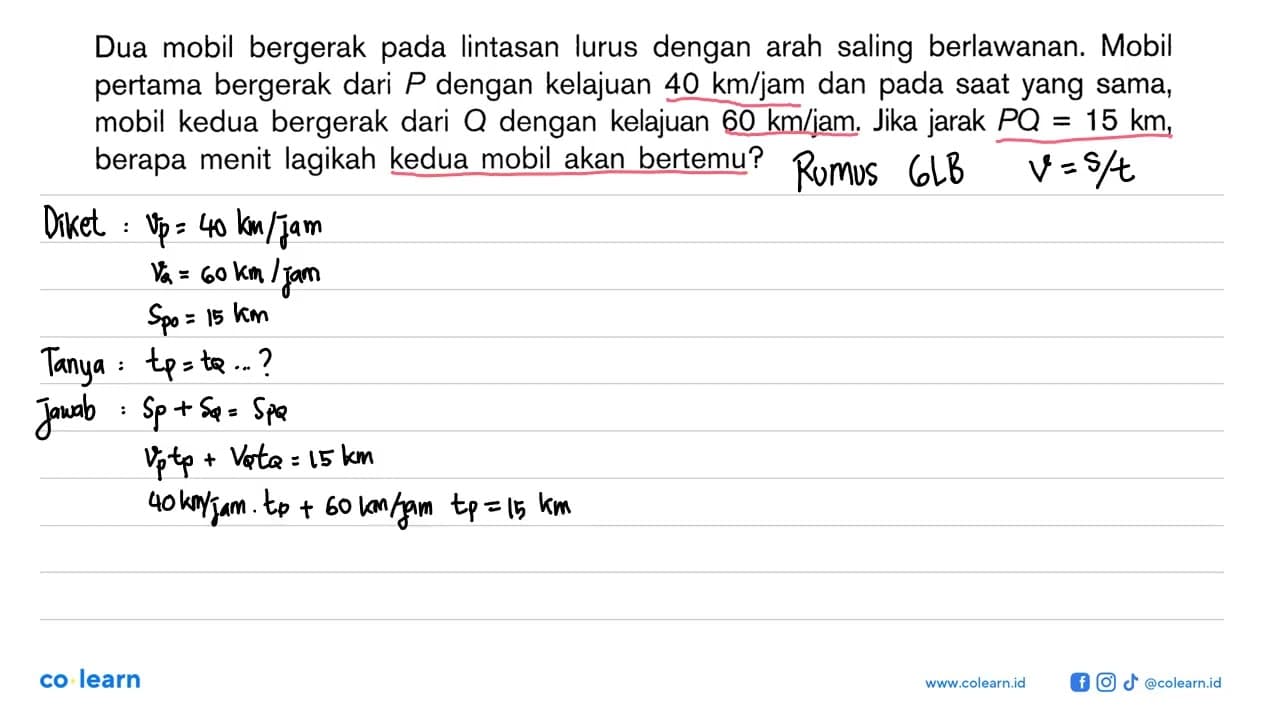 Dua mobil bergerak pada lintasan lurus dengan arah saling berlawanan. Mobil
pertama bergerak dari P dengan kelajuan 40 km/jam dan pada saat yang sama,
mobil kedua bergerak dari Q dengan kelajuan 60 km/jam. Jika jarak PQ = 15 km,
berapa menit lagikah kedua mobil akan bertemu?
Rumus GLB v = s/t
Diket : vp = 40 km/jam
vQ = 60 km/jam
SPQ = 15 km
Tanya : tp = tQ ... ?
Jawab : Sp + SQ = SPQ
Vp tp + VQ tQ = 15 km
40 km/jam . tp + 60 km/jam tp = 15 km
co learn
www.colearn.id
@colearn.id